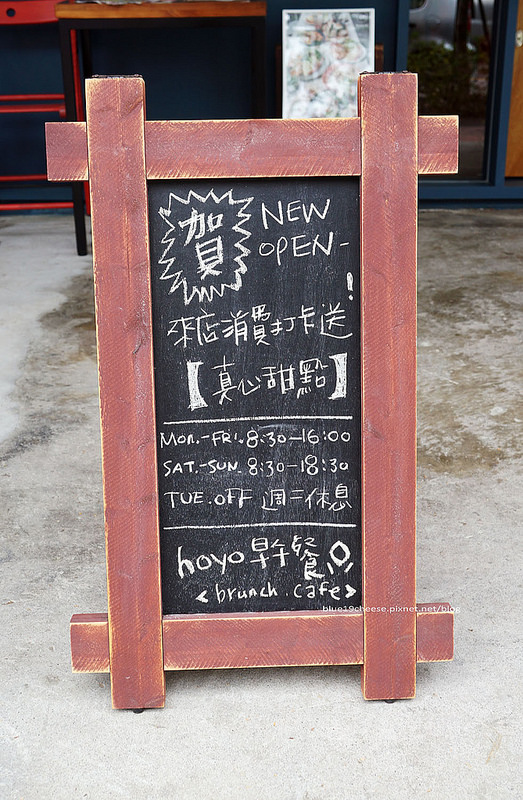 賀 NEW
OPEN-
!
來店消費打卡送
【真心甜點】
MON.-FRI. 8:30-16:00
SAT.-SUN. 8:30-18:30
TUE.OFF 週二休息
hoyo 早午餐
<brunch.cafe>
blue19cheese.pixnet.net/blog